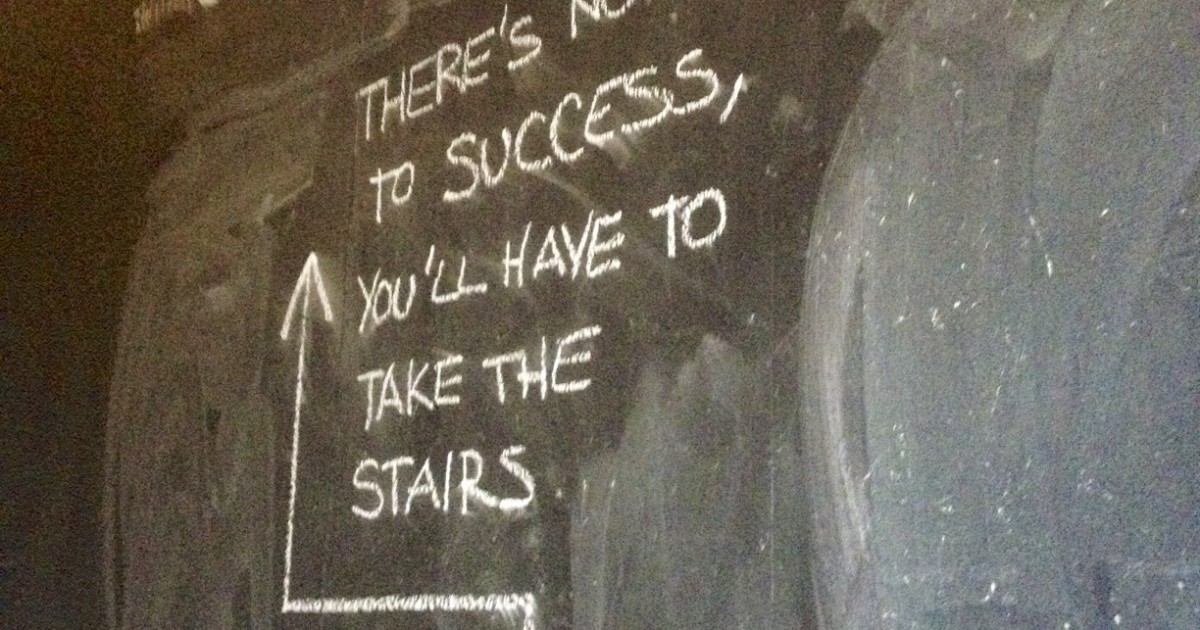 THERE'S NO
TO SUCCESS,
YOU'LL HAVE TO
TAKE THE
STAIRS